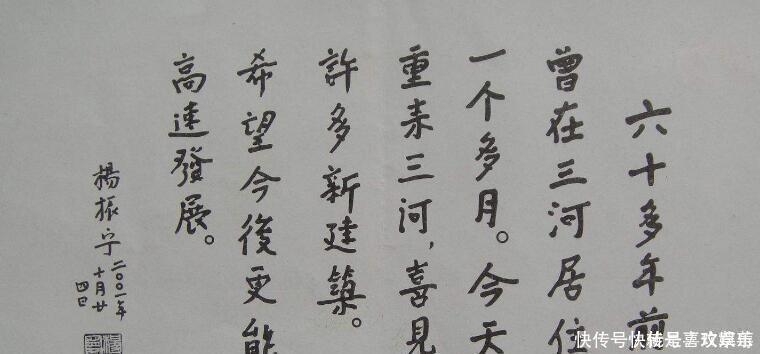 六十多年前
曾在三河居住
一个多月。今天
重来三河，喜見
許多新建築。
希望今後更能
高速發展。
楊振宁
二〇〇一年
十月廿
四日
快传号